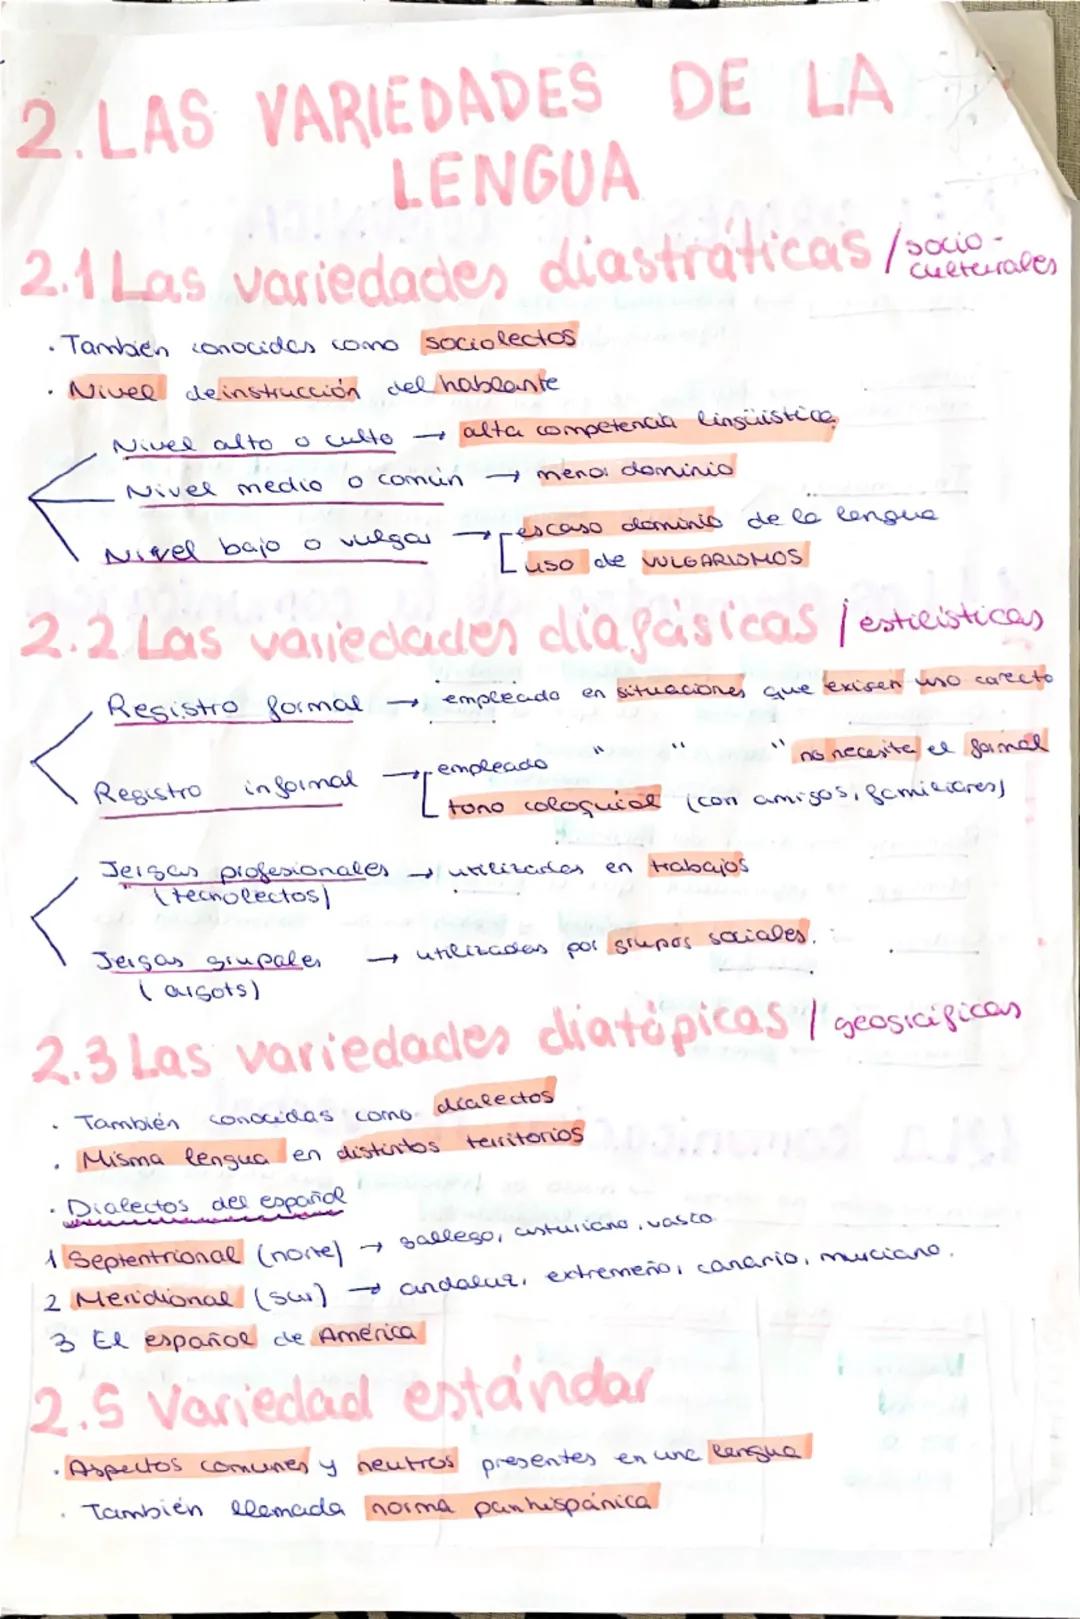 2. LAS VARIEDADES DE LA
LENGUA
2.1 Las variedades diastráticas / socio-
culturales
· También conocidas como sociolectos
· Nivel de instrucción del hablante
Nivel alto o culto → alta competencia lingüística
Nivel medio o común → menor dominio
Nivel bajo o vulgar → escaso dominio de la lengua
uso de VULGARISMOS
2.2 Las variedades diafásicas / estilísticas
Registro formal → empleado en situaciones que exigen uso correcto
Registro informal → empleado " " " no necesite el formal
tono coloquial (con amigos, familiares)
Jergas profesionales → utilizadas en trabajos
(tecnolectos)
Jergas grupales → utilizadas por grupos sociales.
(argots)
2.3 Las variedades diatópicas / geográficas
· También conocidas como dialectos
· Misma lengua en distintos territorios
· Dialectos del español
1 Septentrional (norte) → gallego, asturiano, vasco
2 Meridional (sur) → andaluz, extremeño, canario, murciano.
3 El español de América
2.5 Variedad estándar
· Aspectos comunes y neutros presentes en una lengua
· También llamada norma panhispánica